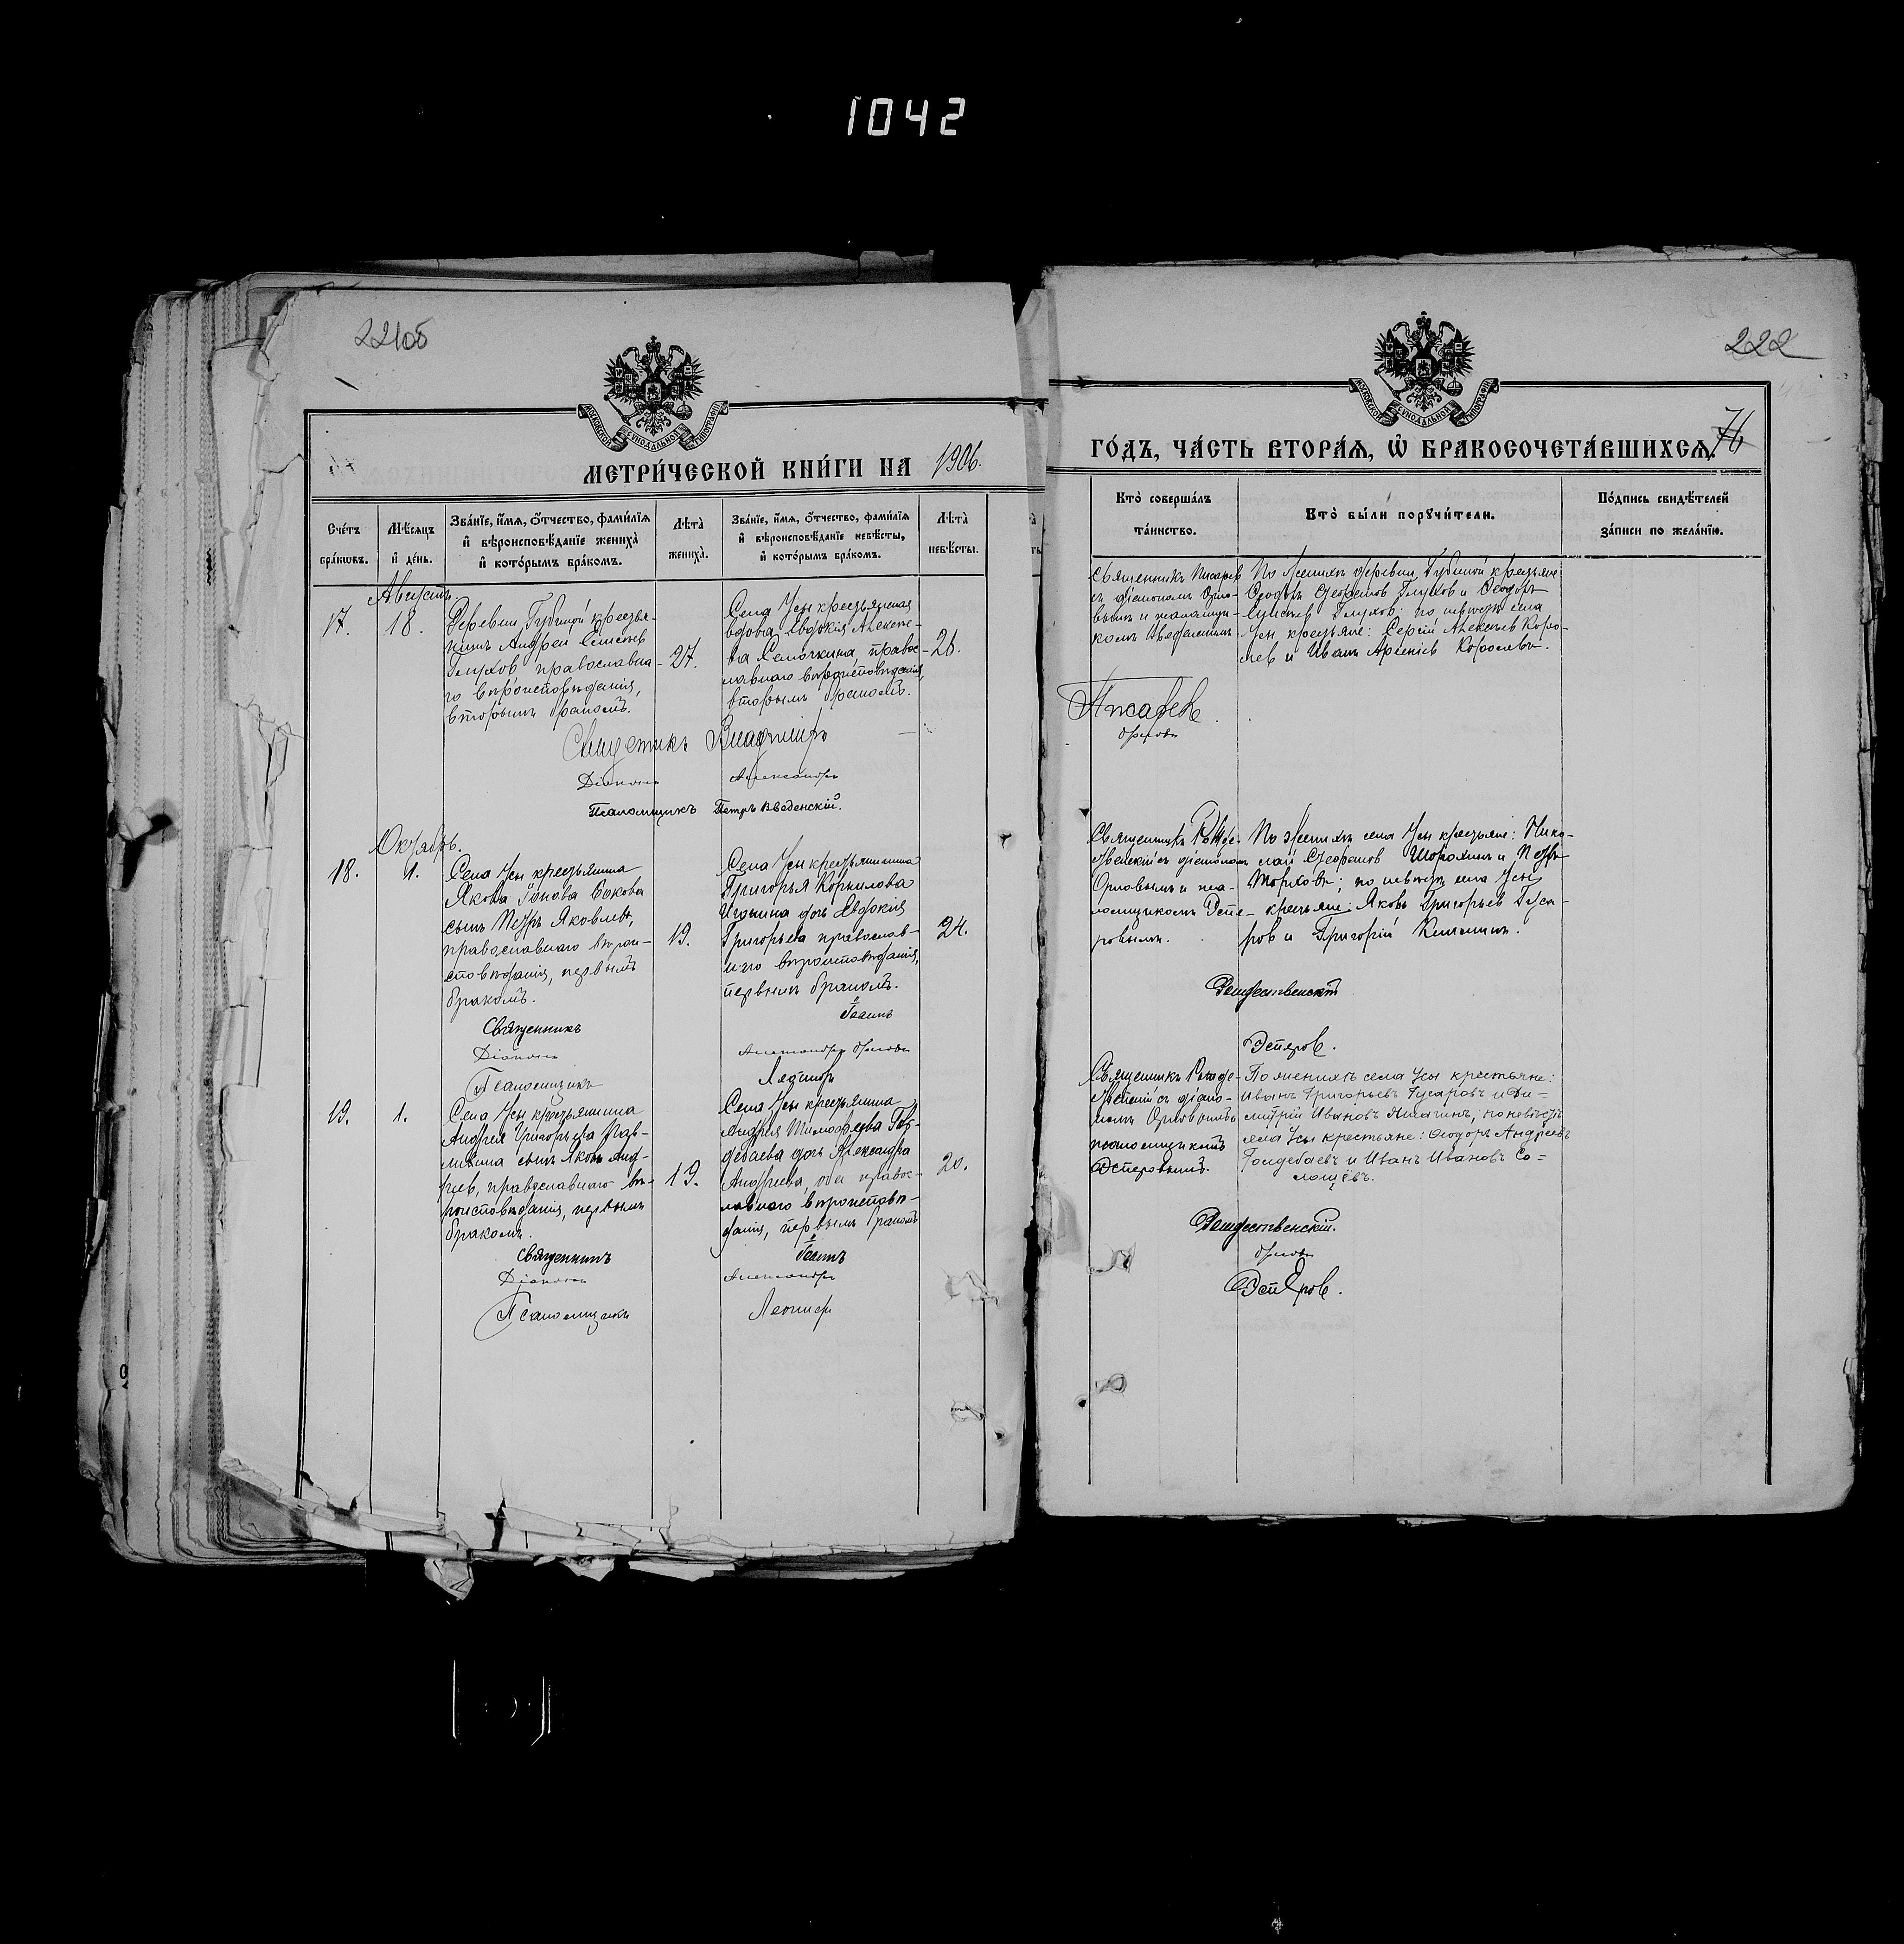 1042
221об
222
76
МЕТРИ́ЧЕСКОЙ КНИ́ГИ НА 1906.
ГО́ДЪ, ЧА́СТЬ ВТОРА́Я, Ѡ БРАКОСОЧЕТА́ВШИХСЯ.
МОСКОВСКОЙ СУНОДАЛЬНОЙ ТИПОГРАФІИ
МОСКОВСКОЙ СУНОДАЛЬНОЙ ТИПОГРАФІИ
Сче́тъ
бра́кѡвъ.
Мѣ́сяцъ
и҆ де́нь.
Зва́нїе, и҆́мя, ѻ҆́тчество, фами́лїя
и҆ вѣроисповѣ́данїе жениха̀
и҆ кото́рымъ бра́комъ.
Лѣта̀
жениха̀.
Зва́нїе, и҆́мя, ѻ҆́тчество, фами́лїя
и҆ вѣроисповѣ́данїе невѣ́сты,
и҆ кото́рымъ бра́комъ.
Лѣта̀
невѣ́сты.
Кто̀ соверша́лъ
та́инство.
Кто̀ бы́ли порꙋчи́тели.
По́дпись свидѣ́телей
за́писи по жела́нїю.
Августъ
17.
18.
Деревни Губиной крестья-
нинъ Андрей Симеоновъ
Глуховъ, православна-
го вѣроисповѣданія,
вторымъ бракомъ.
27.
Села Усы крестьянская
вдова Евдокія Алексѣе-
ва Семочкина, правос-
лавнаго вѣроисповѣданія,
вторымъ бракомъ.
26.
Священникъ Писаревъ
съ діакономъ Орло-
вымъ и псаломщи-
комъ Введенскимъ
По женихѣ деревни Губиной крестьяне
Глуховъ и Ѳеодоръ
Глуховъ; по невѣстѣ села
Усы крестьяне: Сергій Алексѣевъ Коро-
левъ и Иванъ Арсеніевъ Королевъ.
Священникъ Владиміръ
Писаревъ
Діаконъ Александръ
Орловъ
Псаломщикъ Петръ Введенскій.
Октябрь.
18.
1.
Села Усы крестьянина
Якова Іонова Бокова
сынъ Петръ Яковлевъ,
православнаго вѣрои-
сповѣданія, первымъ
бракомъ.
19.
Села Усы крестьянина
Григорья Корнилова
дочь Евдокія
Григорьева православ-
наго вѣроисповѣданія,
первымъ бракомъ.
24.
Священникъ Рожде-
ственскій съ діакономъ
Орловымъ и пса-
ломщикомъ Эспе-
ровымъ.
По женихѣ села Усы крестьяне: Нико-
лай Стефановъ и Петръ
Торховъ; по невѣстѣ села Усы
крестьяне: Яковъ Григорьевъ Гуса-
ровъ и Григорій
Священникъ
Іоаннъ
Рождественскій
Діаконъ
Александръ Орловъ
Псаломщикъ
Леонидъ
Эсперовъ.
19.
1.
Села Усы крестьянина
Андрея Григорьева Пав-
лихина сынъ Яковъ Анд-
реевъ, православнаго вѣ-
роисповѣданія, первымъ
бракомъ.
19.
Села Усы крестьянина
Андрея Тимофеева Гол-
дебаева дочь Александра
Андреева, правос-
лавнаго вѣроисповѣ-
данія, первымъ бракомъ
20.
Священникъ Рожде-
ственскій съ діако-
номъ Орловымъ
псаломщикомъ
Эсперовымъ.
По женихѣ села Усы крестьяне:
Иванъ Григорьевъ Гусаровъ и Ди-
митрій Ивановъ Яшагинъ; по невѣстѣ
села Усы крестьяне: Ѳеодоръ Андреевъ
Голдебаевъ и Иванъ Ивановъ Со-
лощевъ.
Священникъ
Іоаннъ
Рождественскій.
Діаконъ
Александръ
Орловъ
Псаломщикъ
Леонидъ
Эсперовъ.